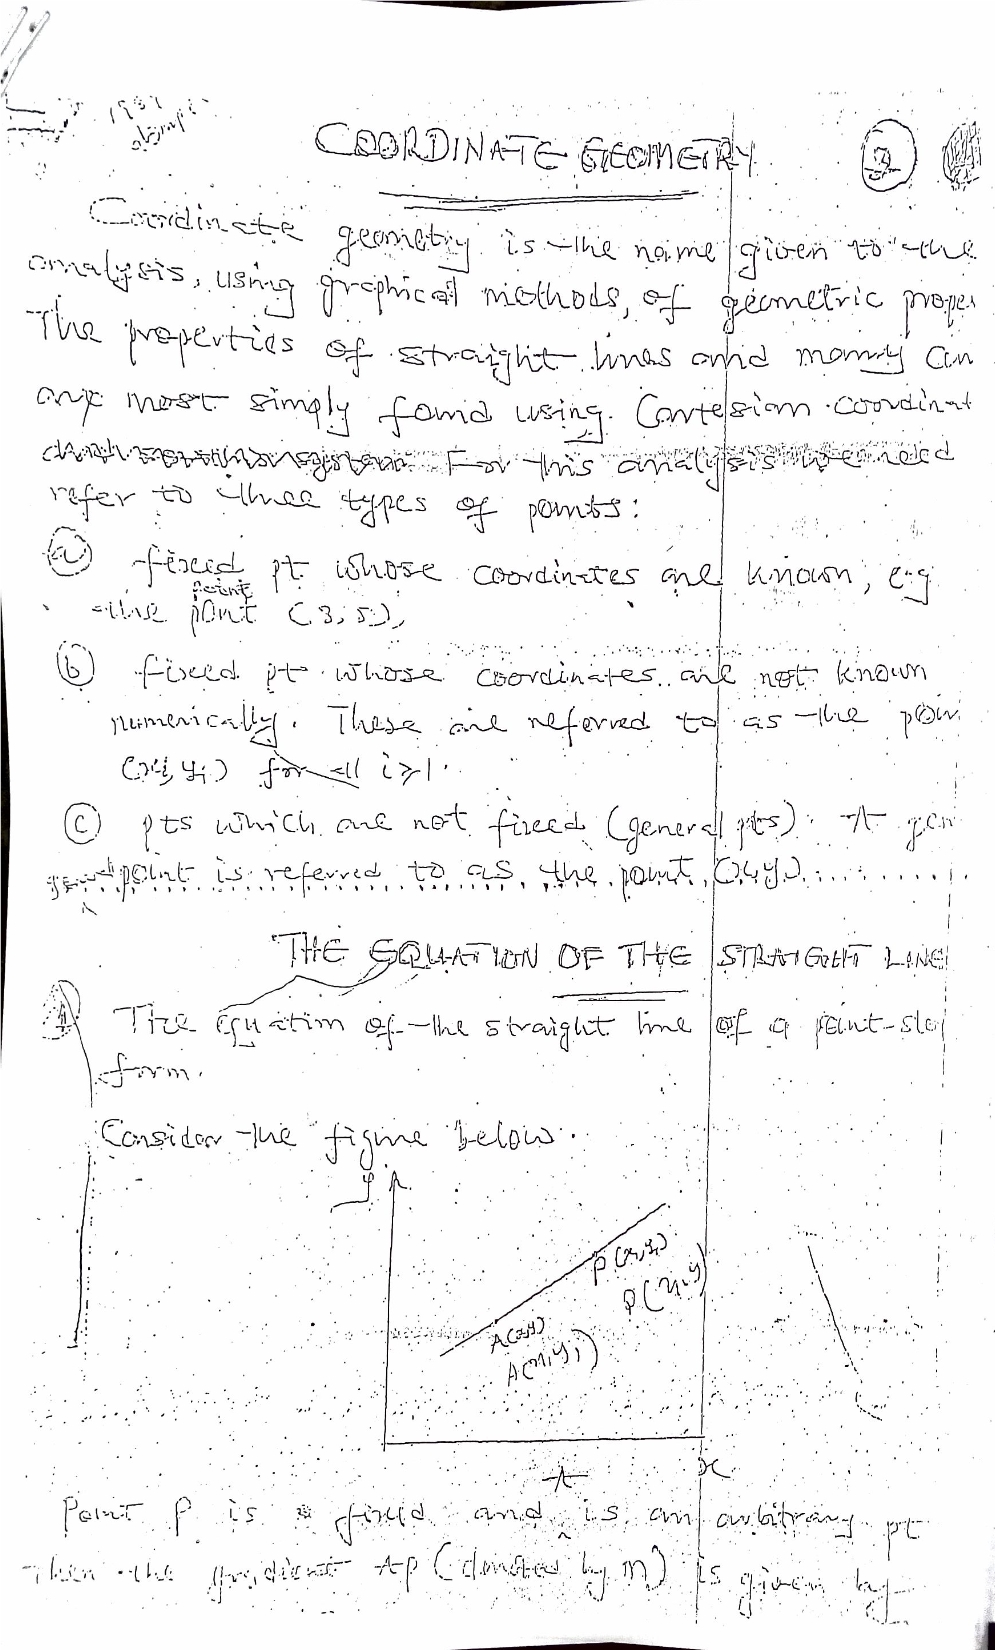 COORDINATE GEOMETRY
2
Coordinate geometry is the name given to the
analysis, using graphical methods, of geometric proper
The properties of straight lines and many
are most simply found using Cartesian coordinat
For this analysis we need
refer to three types of points:
(a) fixed pt whose coordinates are known, e.g
point
the point (3,5),
(b) fixed pt whose coordinates are not known
numerically. These are referred to as the poin
(xi, yi) for all i≥1.
(c) pts which are not fixed (general pts). A gen
point is referred to as the point (x,y)
THE EQUATION OF THE STRAIGHT LINE
The Equation of the straight line of a point-slop
form.
Consider the figure below.
y
P(x,y)
A(x,y)
A(x,y,)
x
A
Point P is fixed and is an arbitrary pt
Then the gradient AP (denoted by m) is given by